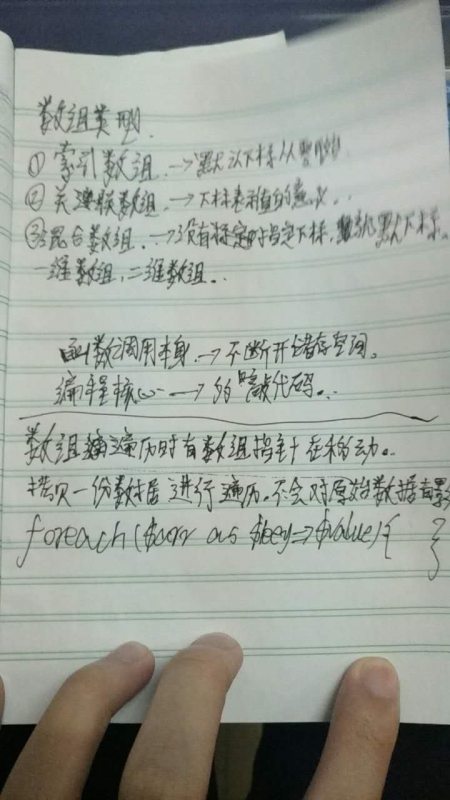 数组类型
① 索引数组 → 默认下标从
② 关联数组 → 下标表示值的意义..
③混合数组 → 没有特定时指定下标, 默认下标.
一维数组, 二维数组..
函数调用本身 → 不断开储存空间.
编程核心 → 的 敲代码..
数组 遍历时有数组指针在移动.
拷贝一份数据进行遍历, 不会对原始数据有影
foreach ($arr as $key=>$value){ }